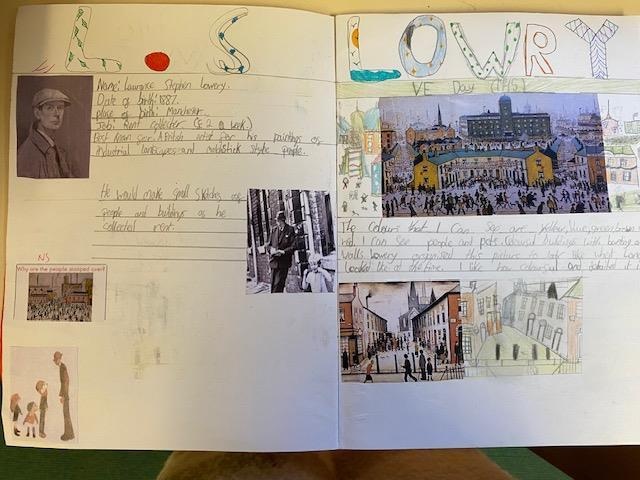 L. S
LOWRY
Name: Laurance Stephen Lowery.
Date of birth: 1887.
place of birth: Manchester.
Job: Rent Collector (£2 a week.)
Best known for: British artist for his paintings of
industrial landscapes and matchstick style people.
He would make small sketches of
people and buildings as he
collected rent.
NS
Why are the people stooped over?
VE Day (1945)
The Colours that I Can see are yellow, blue, green, brown
red. I can see people and pets. Colourful buildings with bunting
walls. Lowry organised this picture to look like what
looked like at the time. I like how colourful and